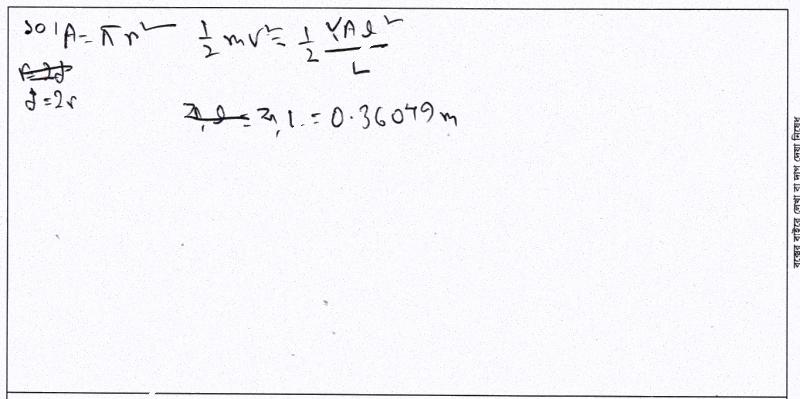 ১০। A = πr² ½mv² = ½ YAl²/L
r=2d
d = 2r
বা, l = বা, l. = 0.36079 m
বক্সের বাইরে লেখা বা দাগ দেয়া নিষেধ